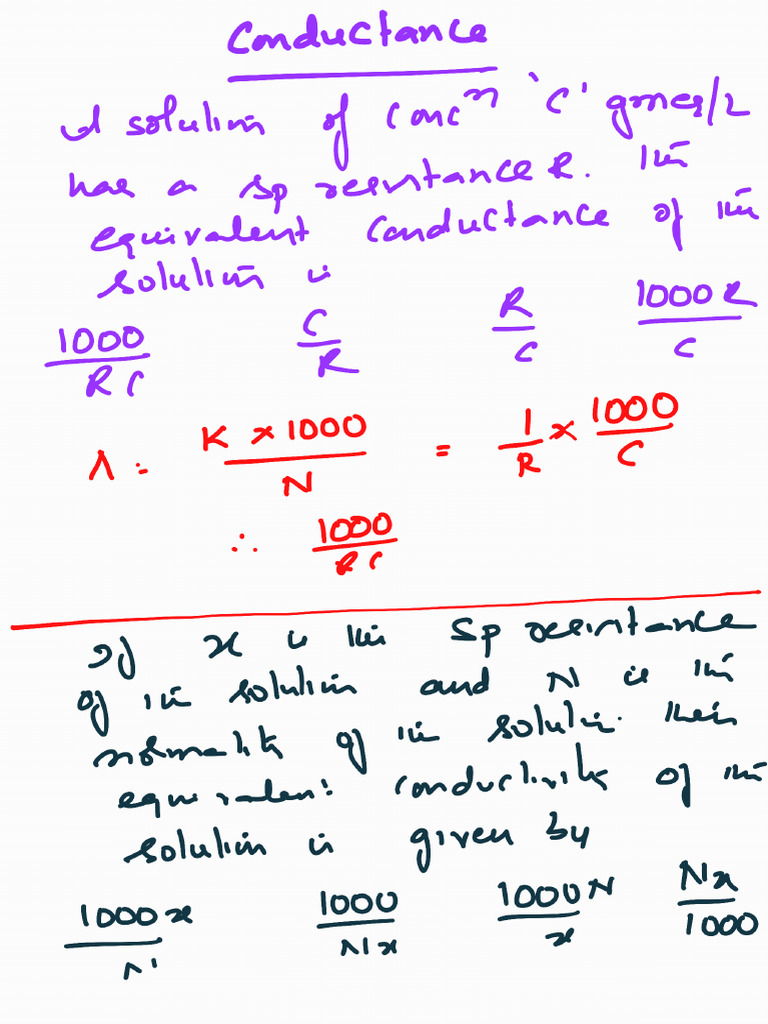 Conductance
A solution of concⁿ 'C' gmeq/L
has a sp resistance R. The
equivalent conductance of the
solution is
1000/RC C/R R/C 1000R/C
Λ = K × 1000/N = 1/R × 1000/C
∴ 1000/RC
If x is the sp resistance
of the solution and N is the
normality of the solution. then
equivalent conductivity of the
solution is given by
1000x/N 1000/Nx 1000N/x Nx/1000